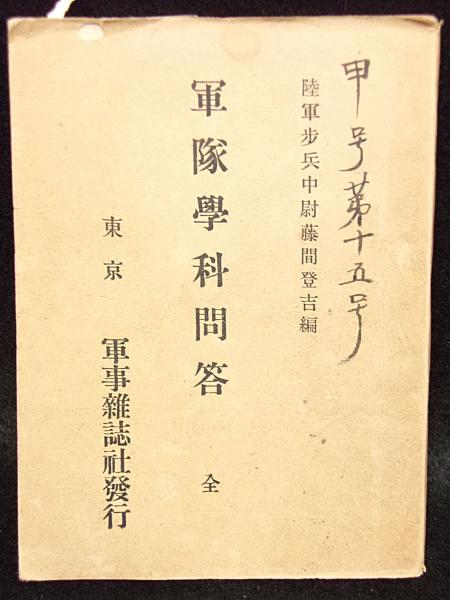 甲号第十五号
陸軍步兵中尉藤間登吉編
軍隊學科問答 全
東京 軍事雜誌社發行